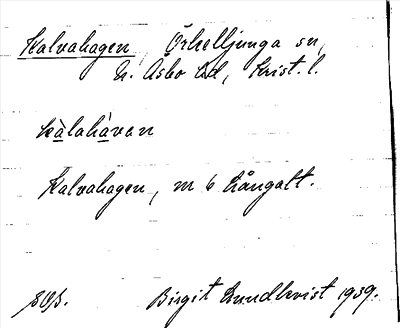 Kalvahagen, Örkelljunga sn,
N. Åsbo hd, Krist. l.
kàlahàvan
Kalvahagen, m 6 Långalt.
Birgit Lundkvist 1939.